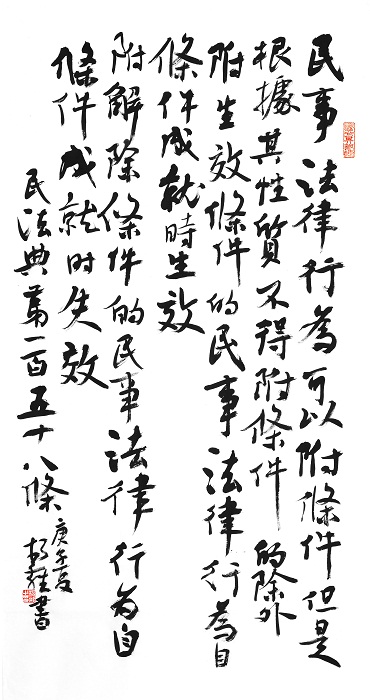 民事法律行為可以附條件但是
根據其性質不得附條件的除外
附生效條件的民事法律行為自
條件成就時生效
附解除條件的民事法律行为自
條件成就时失效
民法典第一百五十八條
庚子夏
書